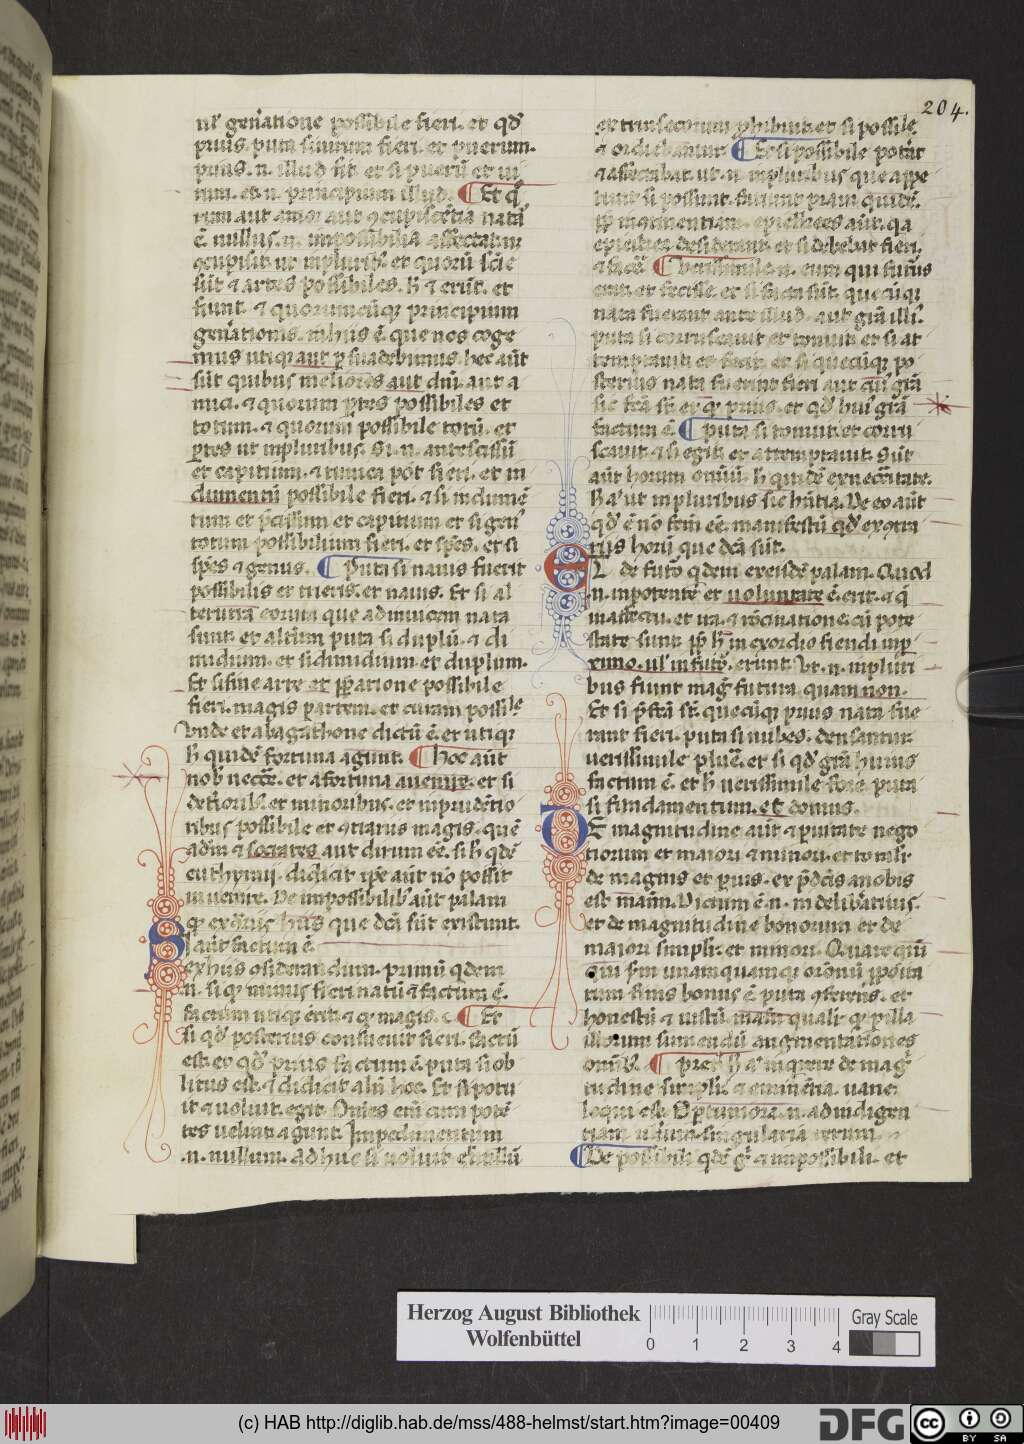 204.
ul' gen'atione possibile fieri. et qd'
prius. puta si uirum fieri. et puerum.
prius .n. illud fit. et si puerū et ui
rum. et .n. principium illud. Et qr'
rum aut amor aut ɔcupiscētia natā
ē. nullus .n. impossibilia affectat aut
ɔcupisit. ut inplurib'. et quorū scīe
sūt & artes possibiles. h' & erūt. et
fiunt. & quorumcūqr principium
gen'ationis. inhiis ē. que nos coge
mus utiqr aut p suadebimus. hec aūt
sūt quibus meliores aut dn̄i. aut a
mici. & quorum ptes possibiles et
totum. & quorum possibile totū. et
ptes ut inpluribus. Si .n. antescissū
et capitium. & tunica pot fieri. et in
dumentū possibile fieri. & si indumē
tum et p̄cissum et capitium et si gen'
totum possibilium fieri. et spēs. et si
spēs & genus. Puta si nauis fuerit
possibilis et trieris. et nauis. Et si al
terutrā eorum que adinuicem nata
sunt. et altūm puta si duplū. & di
midium. et si dimidium et duplum.
Et si sine arte et pparatione possibile
fieri. magis partem. et curam possi^le
Vnde et ab agathone dictū ē. et utiqr
h' quidē fortuna agunt. Hoc aūt
nob' necc̄e. et a fortuna auenire. et si
det'iorib'. et minoribus. et inprudētio
ribus possibile et ɔtrariis magis. quē
adm̄ & socrates aut dirum eē. si h' qdē
euthymii. didicit ipe aut nō possit
inuenire. De impossibilib' aūt palam
qr ex ɔtrariis hiis que dc̄a sūt existunt.
Si aūt factum ē.
ex hiis ɔsiderandum. primū qdem
.n. si qr minus fieri natū & factum ē.
factum utiqr erit & qr magis. Et
si qd' posterius consueuit fieri. factū
est. et qd' prius factum ē. puta si ob
litus est. & didicit aliū hoc. Et si potu
it & uoluit. egit. Omes enī cum potē
tes uelint agunt. Impedimentum
.n. nullum. adhuc si uoluit et nullū
extrinsecorum phibuit. et si possile
& ordiebatur. Et si possibile potūt
& affectabat. ut .n. inpluribus que appe
tunt si possunt. faciunt praui quidē.
pp incontinentiam. epieikees aūt. qa
epieikea desiderant. et si debebat fieri.
& facē. Verissimile .n. eum qui fut'us
erat. et fecisse. et si facta sūt. quecūqr
nata fuerant ante illud. aut gr̄a illi'.
puta si coruscauit et tonuit. et si at
temptauit et fecit. et si quecūqr po
sterius nata fuerint fieri aut cui' gr̄a
sic fc̄a st'. et qr prius. et qd' hui' gr̄a
factum ē. Puta si tonuit. et corru
scauit. & si egit. et attemptauit. Sūt
aūt horum omiū. h' quidē ex necc̄itate.
h' a' ut inpluribus sic hn̄tia. De eo aūt
qd' ē nō fcm̄ eē. manifestū qd' ex ɔtra
riis horū que dc̄a sūt.
Et de fut'o qdem ex eisdē palam. Quod
.n. inpotente et uoluntate ē. erit. & q
in affectu. et ira. & rōcinatione. cū pote
state sunt. pp h' in exordio fiendi inp
ximo. ul' in fut'o. erunt. Vt .n. inpluri
bus fiunt mag' futura. quam non.
Et si p̄fc̄a st'. quecūqr prius nata fue
rant fieri. puta si nubes. densantur.
uerissimile pluē. et si qd' gr̄a huius
factum ē. et h' uerissimile fore. puta
si fundamentum. et domus.
De magnitudine aūt & paruitate nego
tiorum et maiori & minori. et to talr'
de magnis et paruis. ex p̄dc̄is a nobis
est man'. Dictum ē .n. in deliberatiuis.
et de magnitudine bonorum et de
maiori simplr'. et minori. Quare qm̄
cui scdm unamquamqr orōnū ppositū
tum finis bonus ē. puta ɔferens. et
honestū & iustū. man' qualr' qr p illa
illorum sumendū augmentationes
omib'. Pret' h' a' inqrere de mag'
tudine simplr' & eminētia. uane
loqui est. Optuniora .n. ad indigen
tiam utilium. singularia rerum.
De possibili qdē g' & impossibili. et
Herzog August Bibliothek
Wolfenbüttel
0 1 2 3 4
Gray Scale
(c) HAB http://diglib.hab.de/mss/488-helmst/start.htm?image=00409
DFG
cc
BY SA